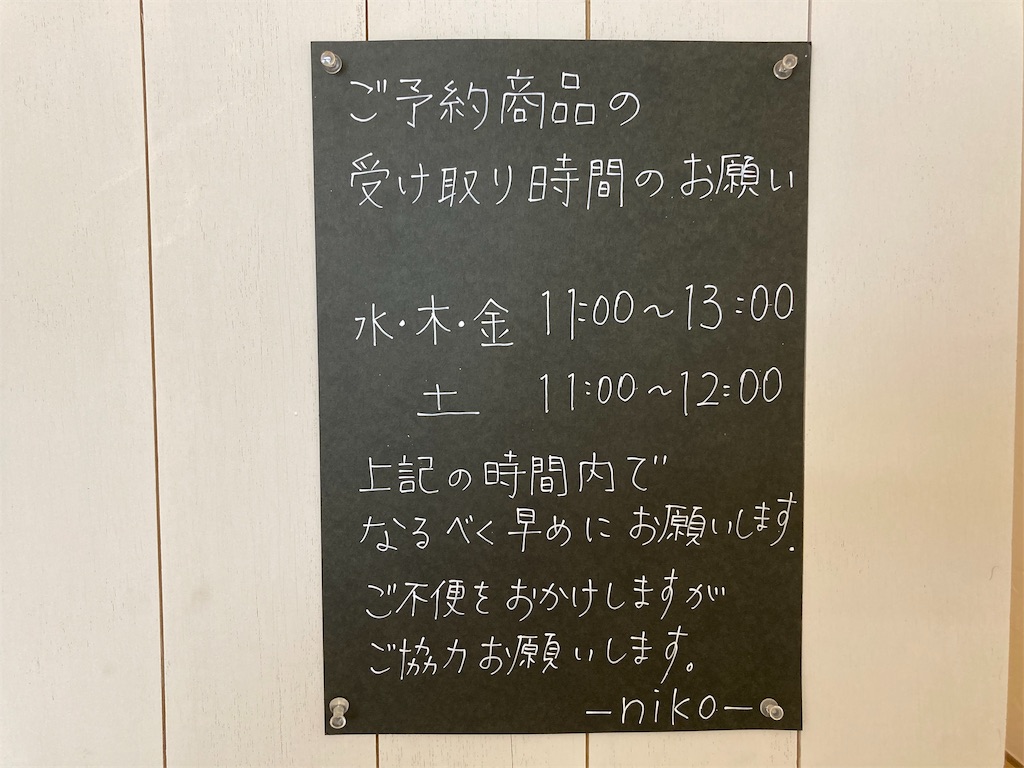 ご予約商品の
受け取り時間のお願い
水・木・金 11:00~13:00
土 11:00~12:00
上記の時間内で
なるべく早めにお願いします.
ご不便をおかけしますが
ご協力お願いします。
-niko-